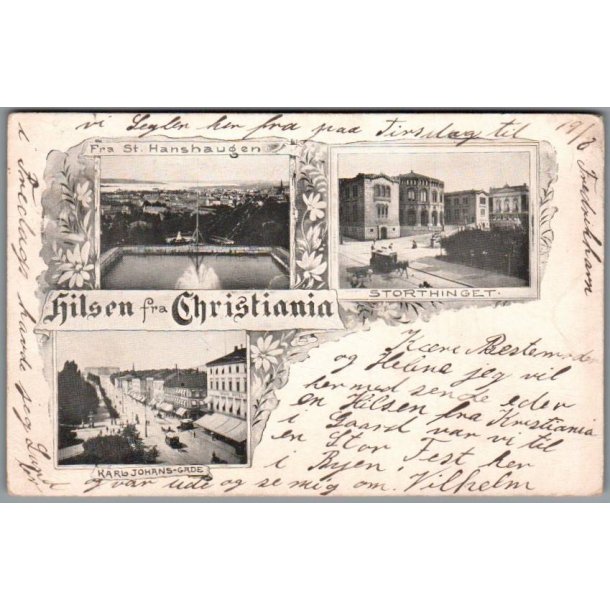 vi Segler her fra paa Tirsdag til
Fredrikham
19/8
Fra St. Hanshaugen
STORTHINGET.
Hilsen fra Christiania
KARL JOHANS-GADE
Kære Bestemoder
og Helene jeg vil
hermed sende eder
en Hilsen fra Kristiania
i Gaard var vi til
en Stor Fest her
i Byen.
og var ude og se mig om. Vilhelm
i Fredags havde jeg